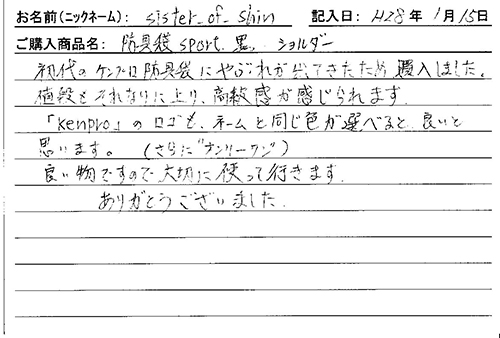 お名前(ニックネーム): sister_of_shin 記入日: H28年 1月15日
ご購入商品名: 防具袋 sport 黒 ショルダー
初代のケンプロ防具袋にやぶれが出てきたため購入しました。
値段もそれなりに上り、高級感が感じられます。
「Kenpro」のロゴも、ネームと同じ色が選べると良いと
思います。(さらに"オンリーワン")
良い物ですので大切に使って行きます。
ありがとうございました。